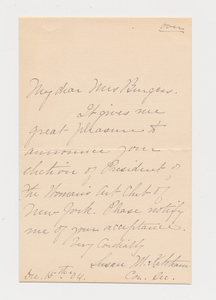 over
My dear Mrs Burgess.
It gives me
great pleasure to
announce your
election of President of
the Woman's Art Club of
New York. Please notify
me of your acceptance.
Very Cordially
Susan M. Ketcham
Dec. 15th 94. Cor. Sec.